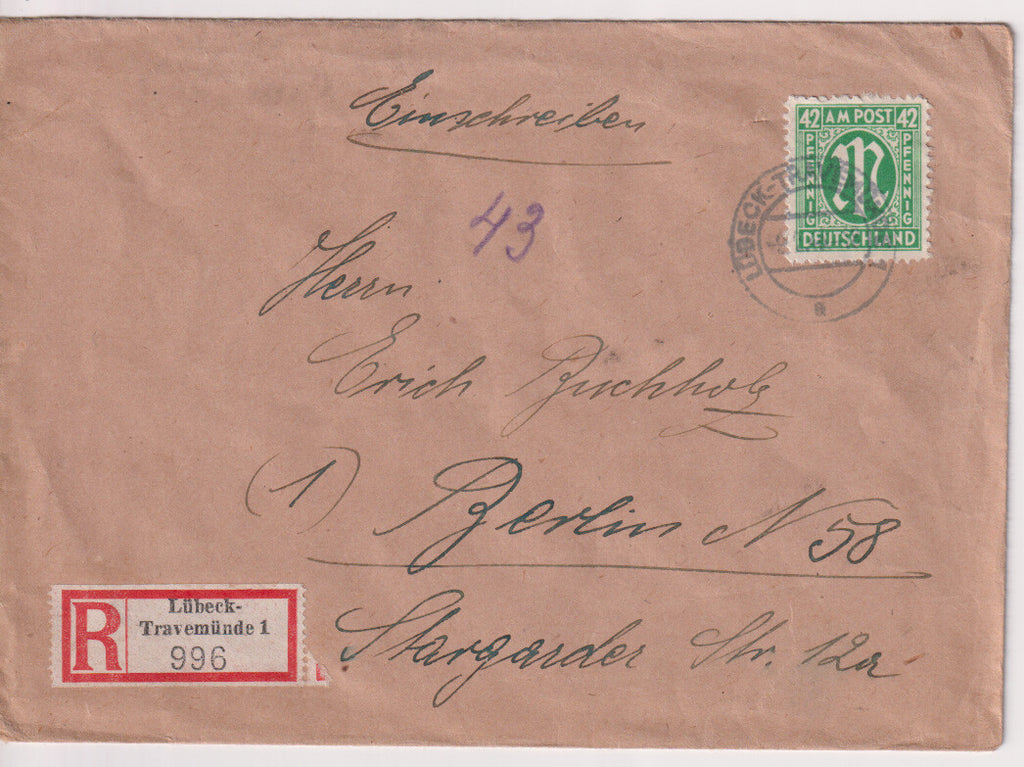 Einschreiben
42 AM POST 42
PFENNIG PFENNIG
DEUTSCHLAND
LÜBECK-TRAVEMÜNDE
a
43
Herrn
Erich Buchholz
(1) Berlin N 58
Stargarder Str. 12a
R
Lübeck-
Travemünde 1
996